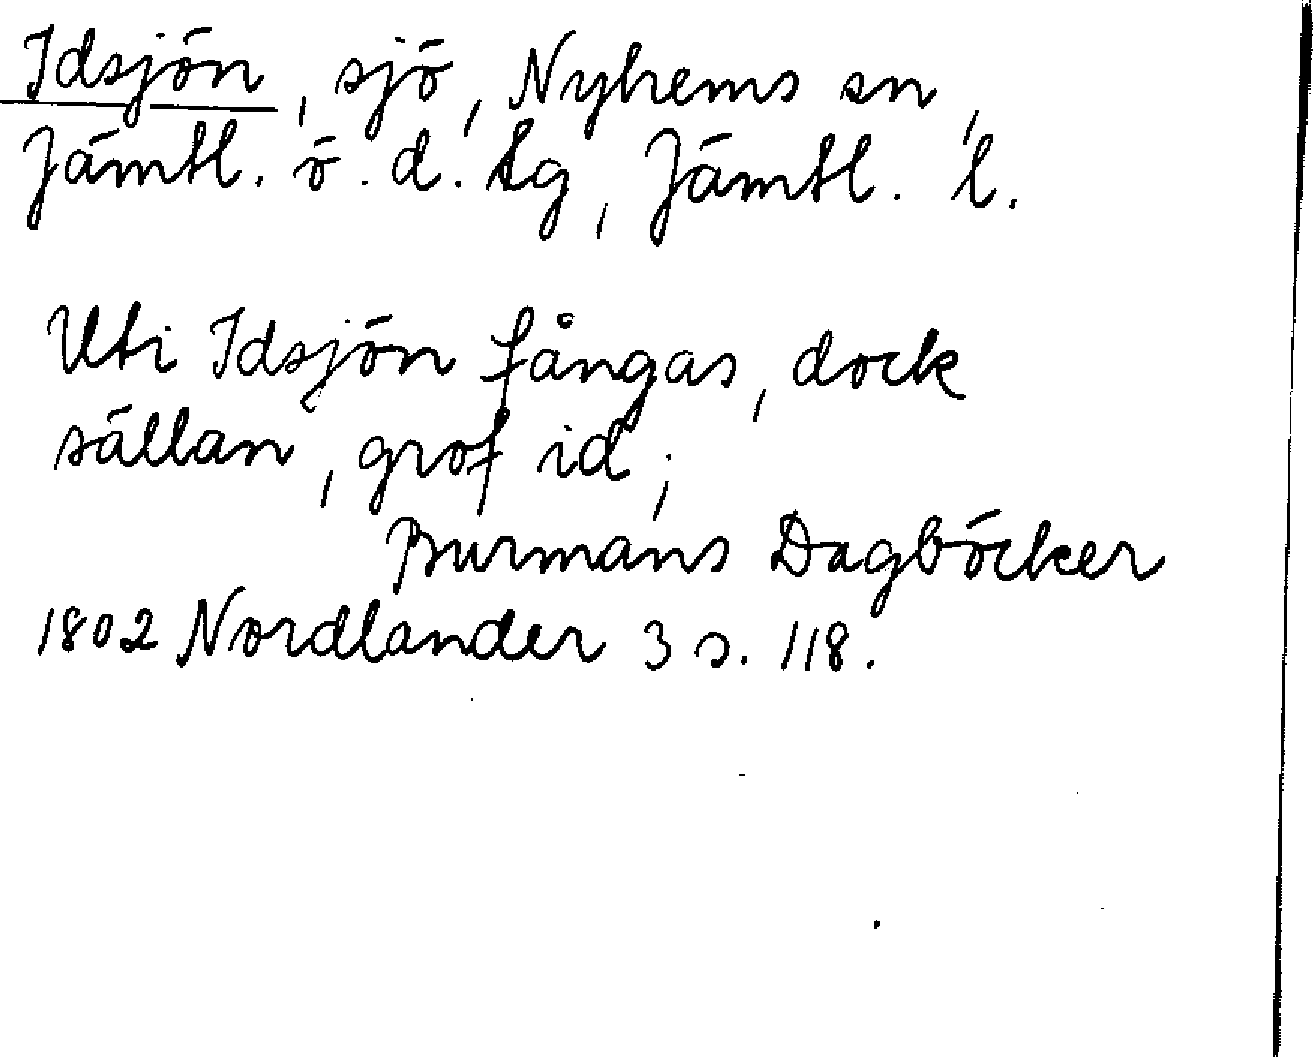 Idsjön, sjö, Nyhems sn,
Jämtl. ö. d. tg, Jämtl. l.
Uti Idsjön fångas, dock
sällan, grof id;
Burmans Dagböcker
1802 Nordlander 3 s. 118.